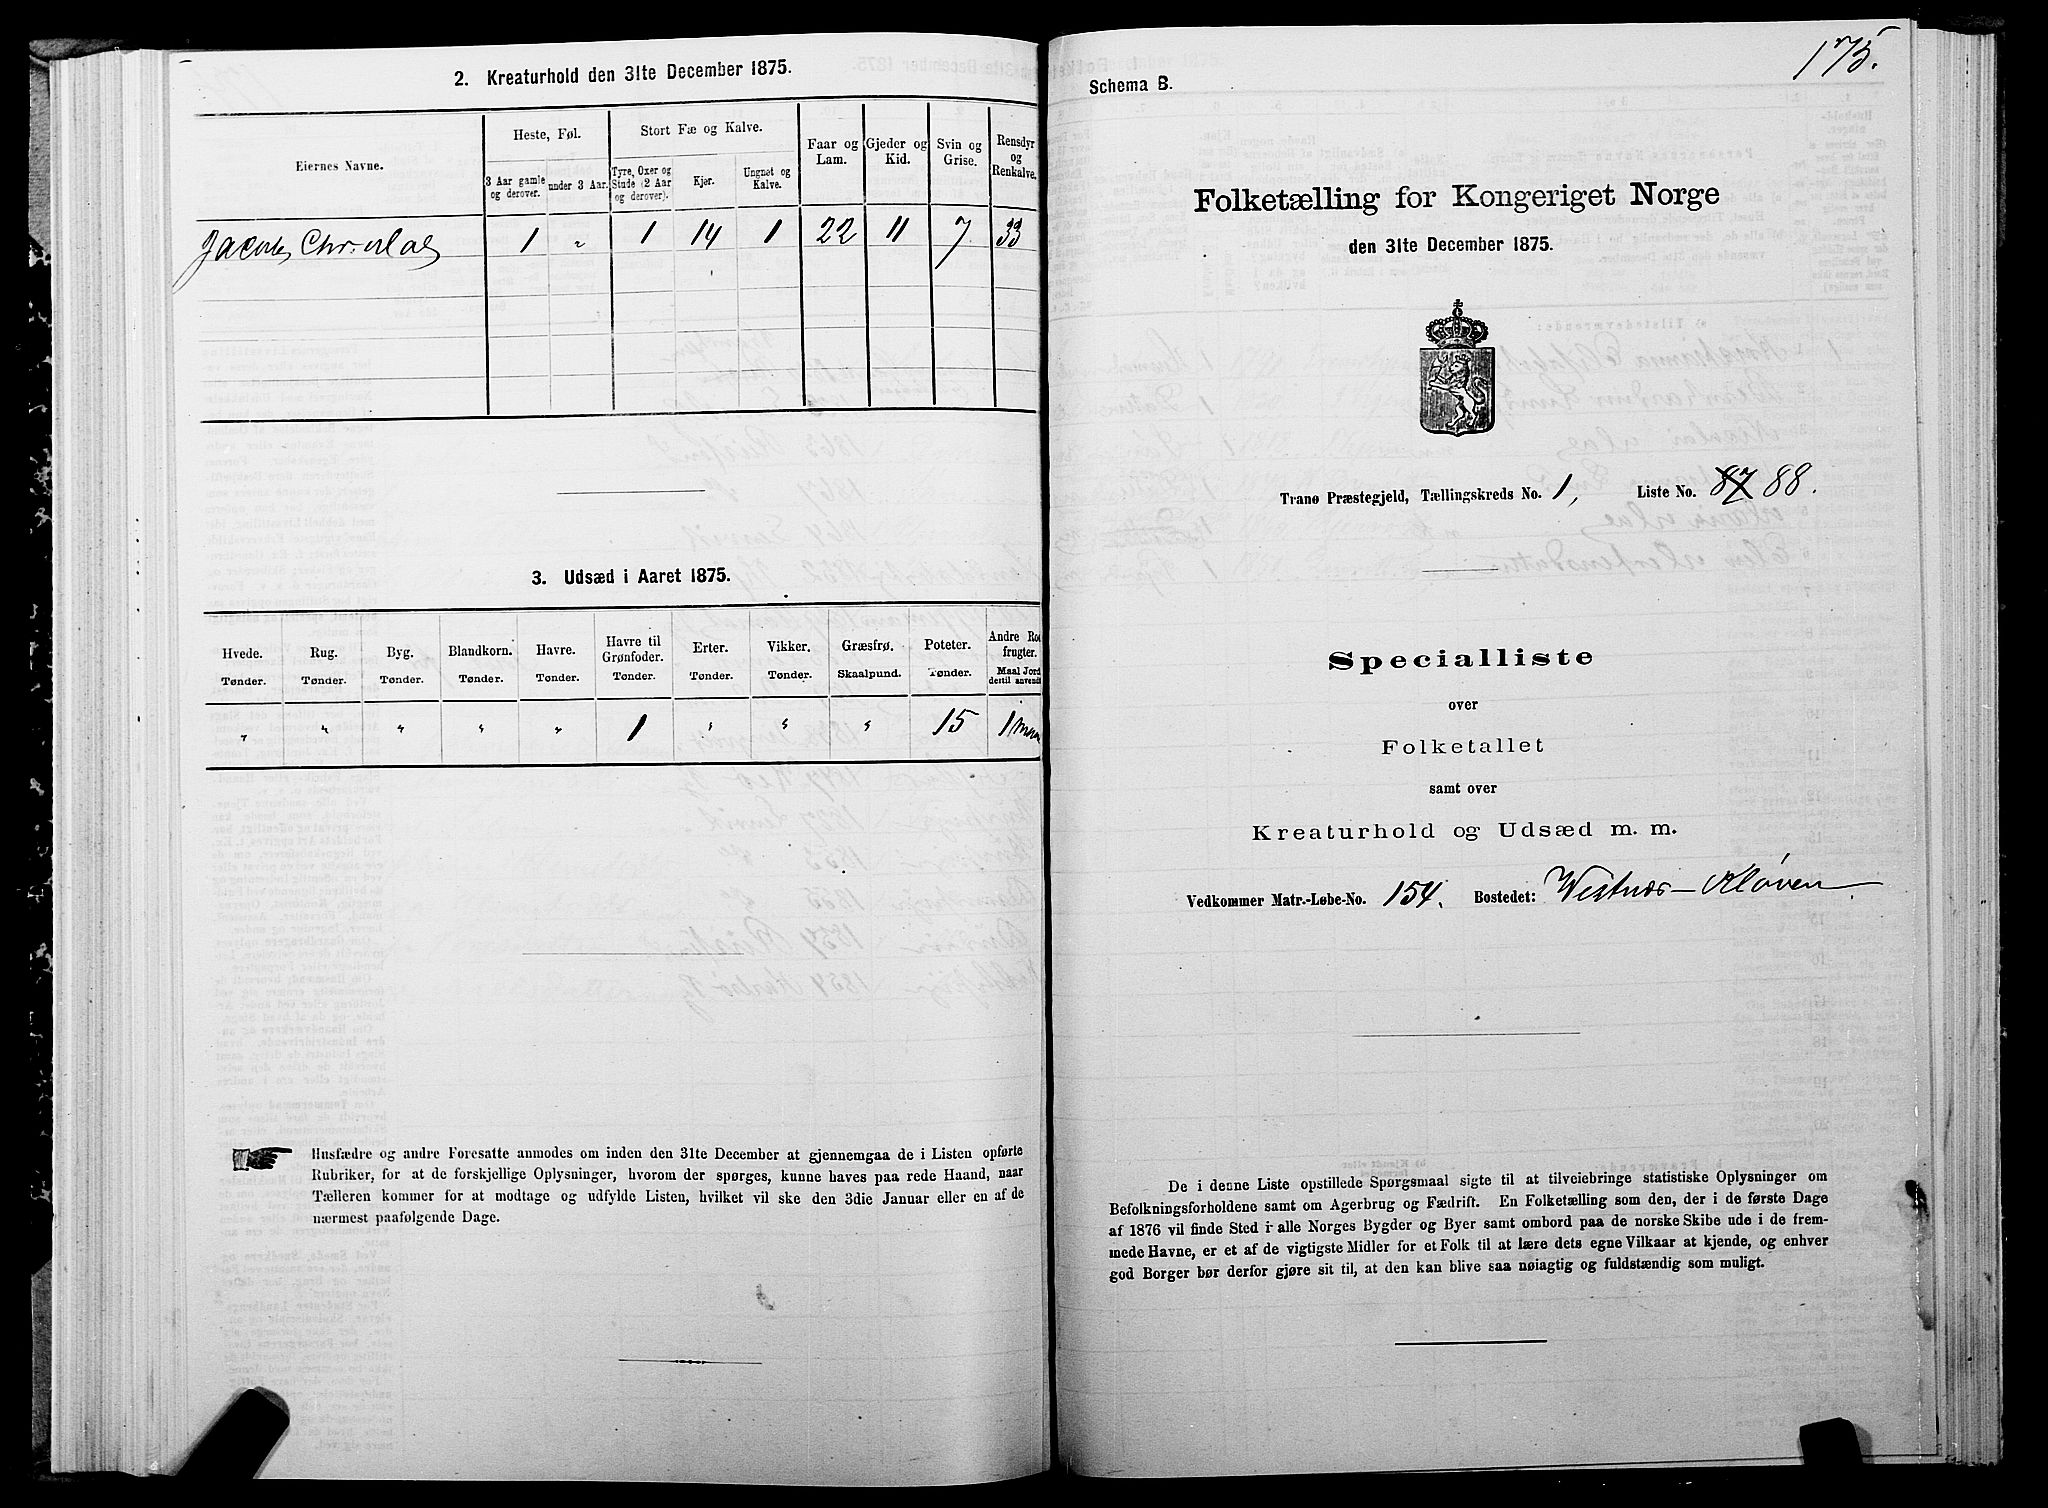 2. Kreaturhold den 31te December 1875.
Eiernes Navne.
Heste, Føl.
3 Aar gamle og derover.
under 3 Aar.
Stort Fæ og Kalve.
Tyre, Oxer og Stude (2 Aar og derover).
Kjør.
Ungnøt og Kalve.
Faar og Lam.
Gjeder og Kid.
Svin og Grise.
Rensdyr og Renkalve.
1 „ 1 14 1 22 11 7 33
3. Udsæd i Aaret 1875.
Hvede. Rug. Byg. Blandkorn. Havre. Havre til Grønfoder. Erter. Vikker. Græsfrø. Poteter. Andre Rodfrugter.
Tønder. Tønder. Tønder. Tønder. Tønder. Tønder. Tønder. Tønder. Skaalpund. Tønder. Maal Jord dertil anvendt
„ „ „ „ „ 1 „ „ „ 15 1
Husfædre og andre Foresatte anmodes om inden den 31te December at gjennemgaa de i Listen opførte
Rubriker, for at de forskjellige Oplysninger, hvorom der spørges, kunne haves paa rede Haand, naar
Tælleren kommer for at modtage og udfylde Listen, hvilket vil ske den 3die Januar eller en af de
nærmest paafølgende Dage.
175.
Schema B.
Folketælling for Kongeriget Norge
den 31te December 1875.
Tranø Præstegjeld, Tællingskreds No. 1, Liste No. 87 88.
Specialliste
over
Folketallet
samt over
Kreaturhold og Udsæd m. m.
Vedkommer Matr.-Løbe-No. 154. Bostedet: Westnæs-Kløven
De i denne Liste opstillede Spørgsmaal sigte til at tilveiebringe statistiske Oplysninger om
Befolkningsforholdene samt om Agerbrug og Fædrift. En Folketælling som den, der i de første Dage
af 1876 vil finde Sted i alle Norges Bygder og Byer samt ombord paa de norske Skibe ude i de frem-
mede Havne, er et af de vigtigste Midler for et Folk til at lære dets egne Vilkaar at kjende, og enhver
god Borger bør derfor gjøre sit til, at den kan blive saa nøiagtig og fuldstændig som muligt.